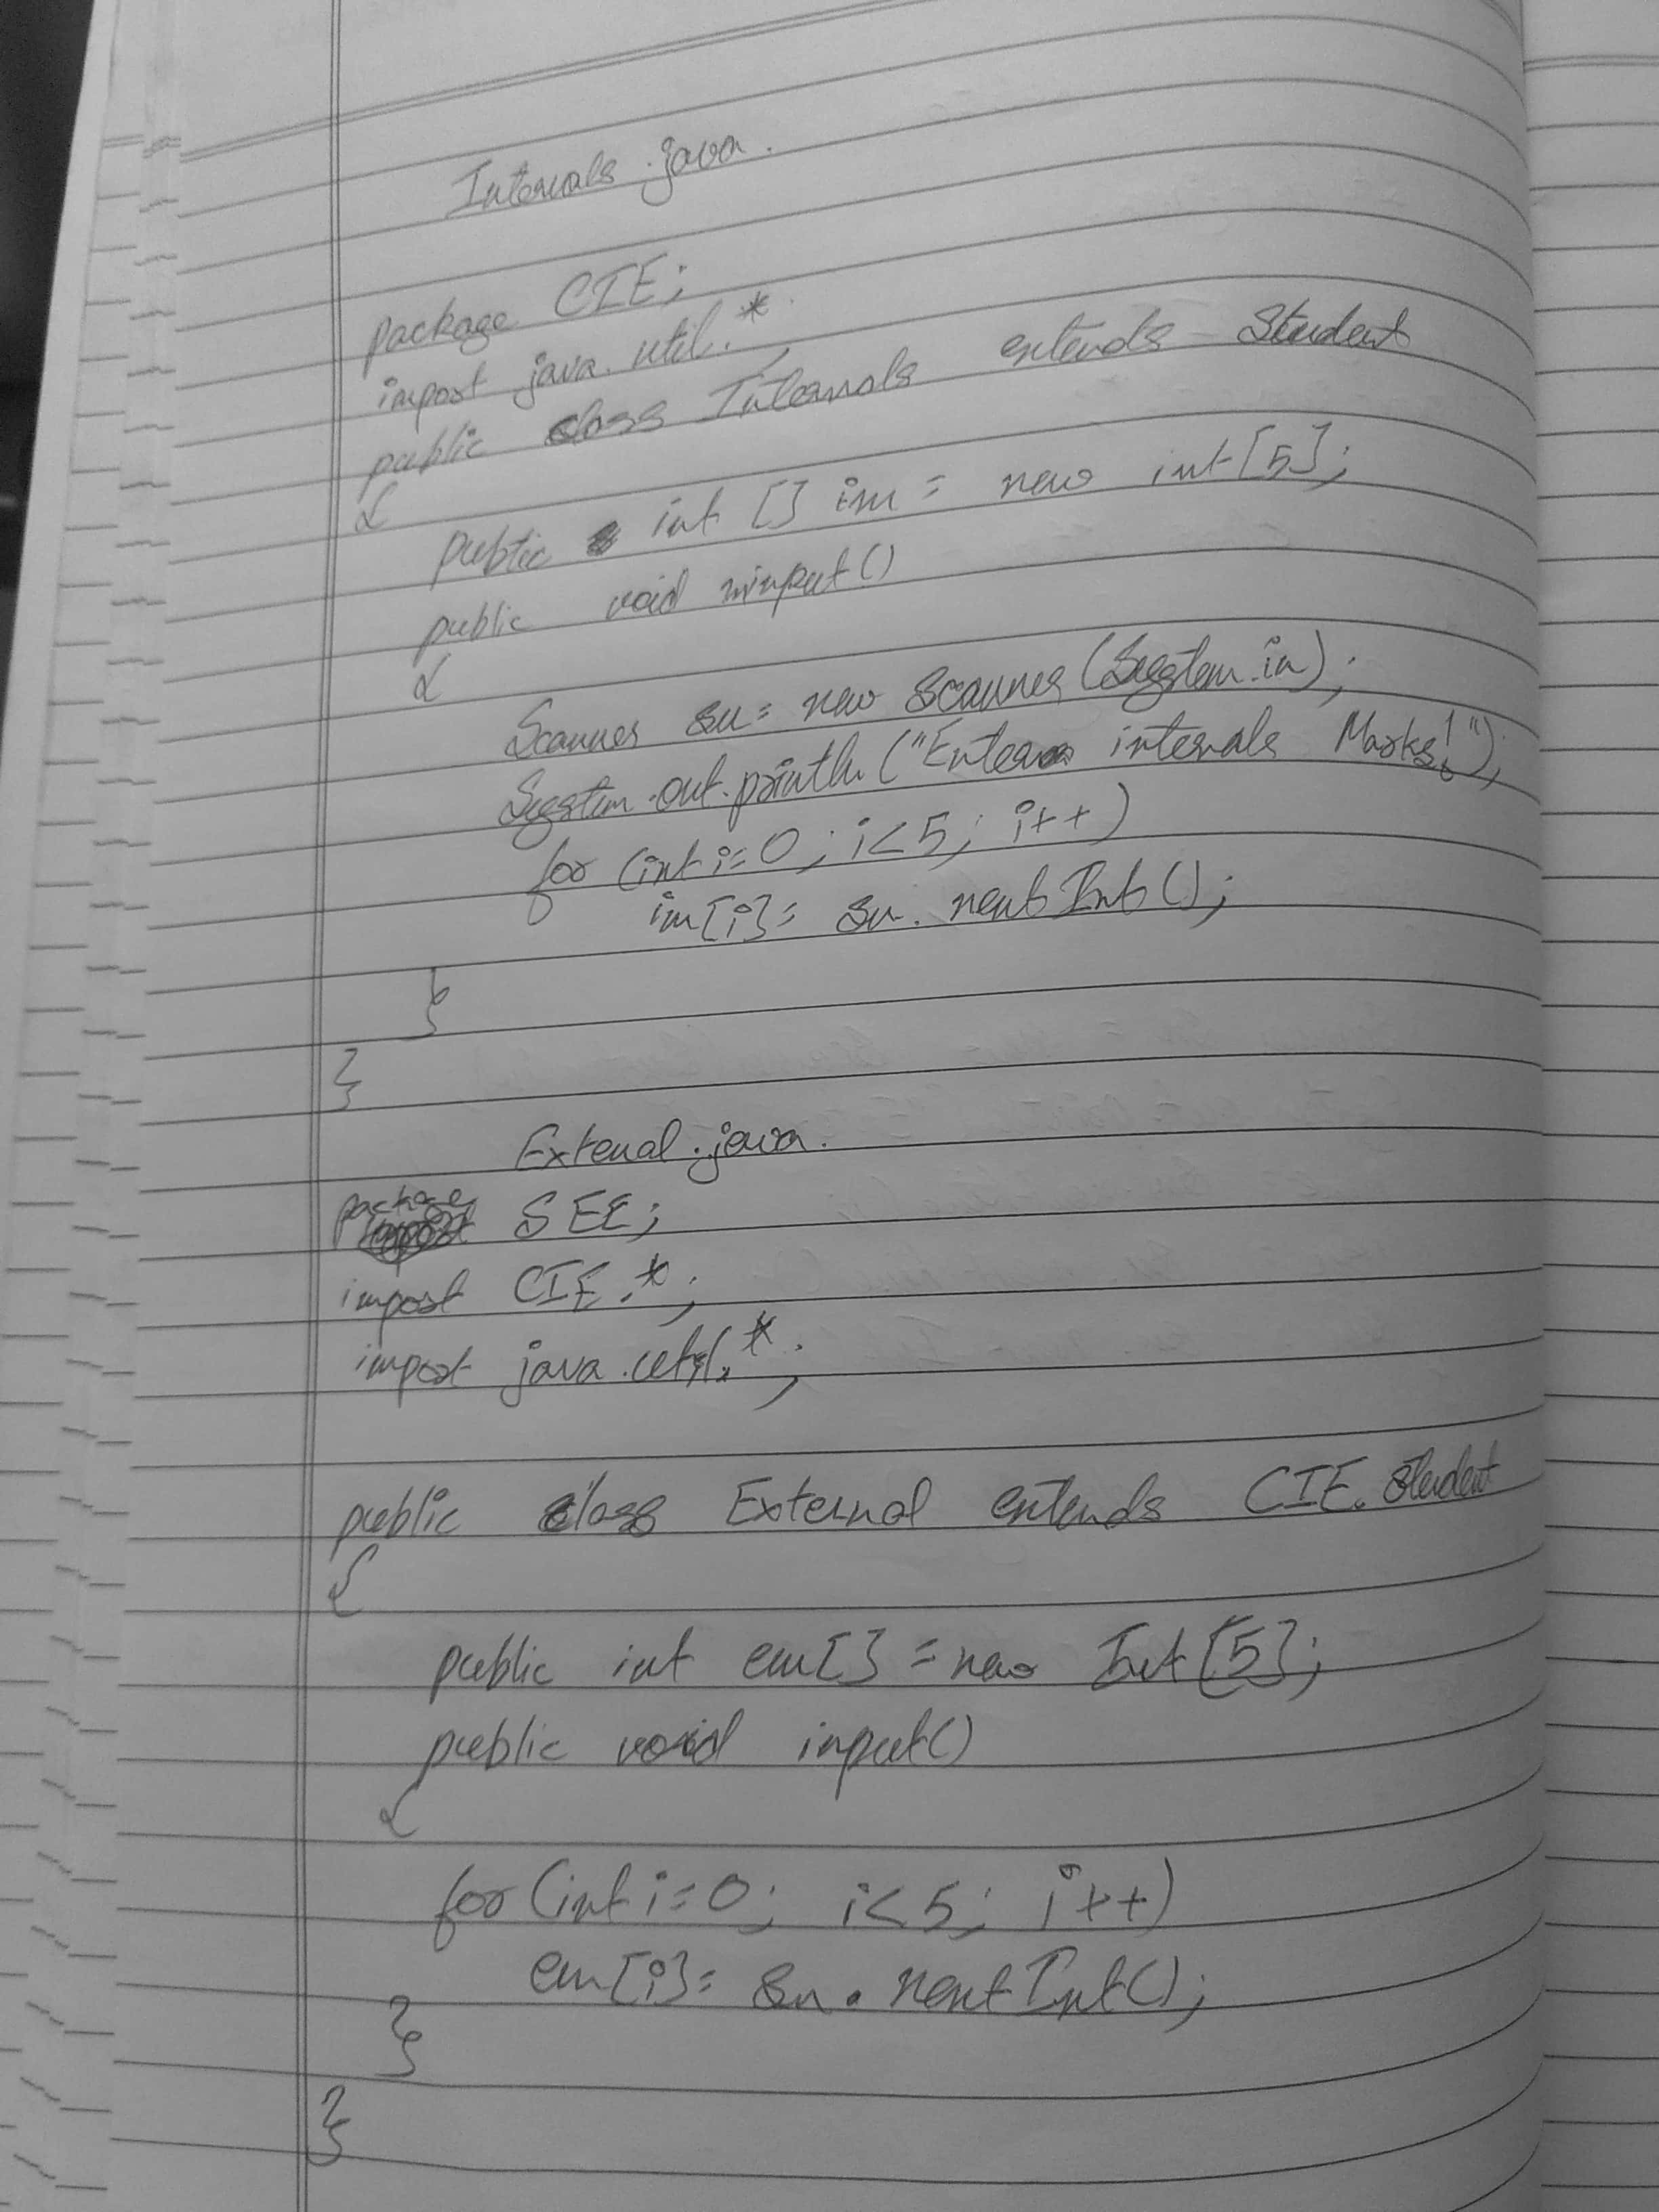 Internals.java.
package CIE;
import java.util.*;
public class Internals extends Student
{
public int [] im = new int[5];
public void input()
{
Scanner sn = new Scanner (System.in);
System.out.println ("Enter internals Marks!");
for (int i=0; i<5; i++)
im[i]= sn.nextInt();
}
}
External.java.
package SEE;
import CIE.*;
import java.util.*;
public class External extends CIE.Student
{
public int em[] = new Int[5];
public void input()
{
for (int i=0; i<5; i++)
em[i]= sn.nextInt();
}
}